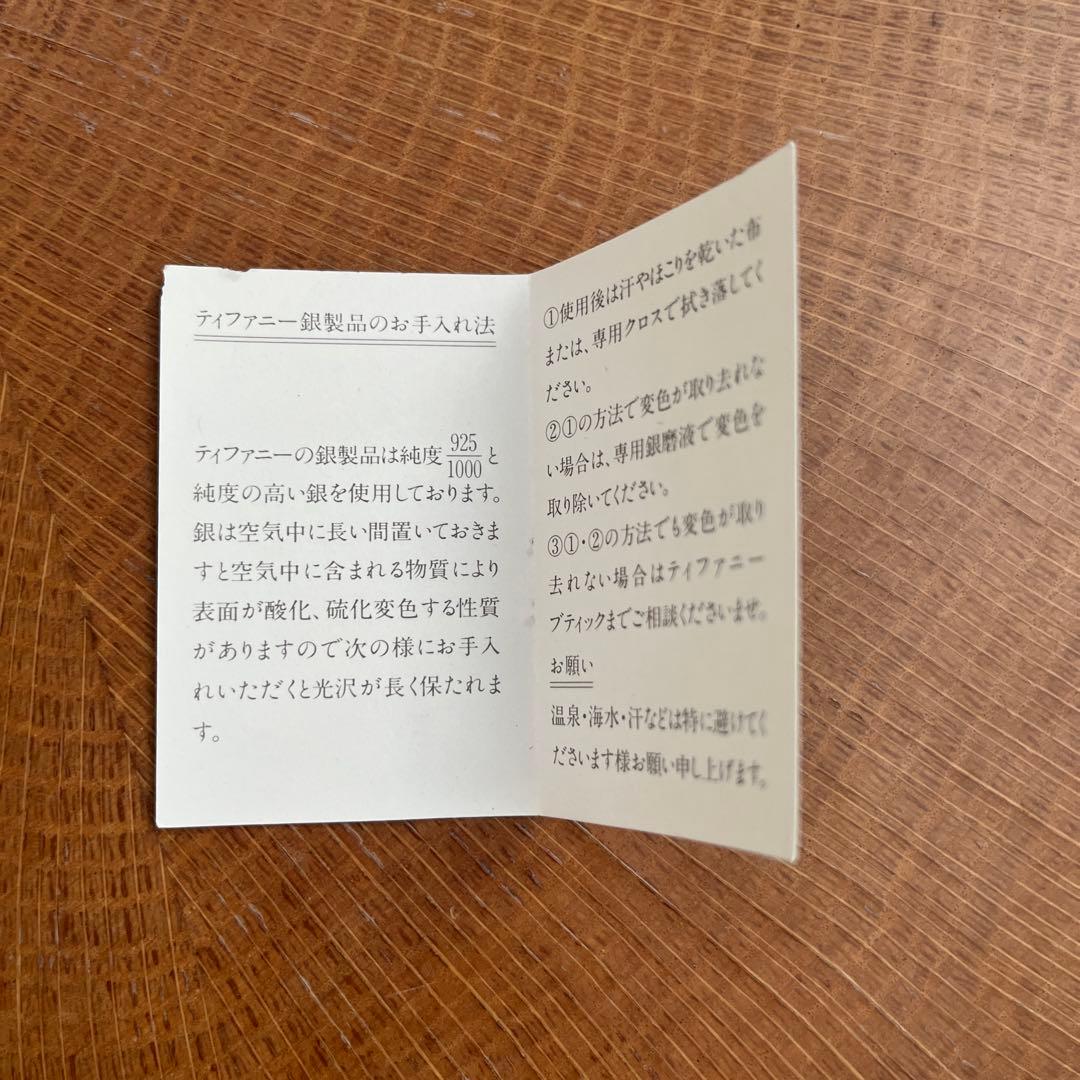 ティファニー銀製品のお手入れ法
ティファニーの銀製品は純度925/1000と
純度の高い銀を使用しております。
銀は空気中に長い間置いておきま
すと空気中に含まれる物質により
表面が酸化、硫化変色する性質
がありますので次の様にお手入
れいただくと光沢が長く保たれま
す。
①使用後は汗やほこりを乾いた布
または、専用クロスで拭き落してく
ださい。
②①の方法で変色が取り去れな
い場合は、専用銀磨液で変色を
取り除いてください。
③①・②の方法でも変色が取り
去れない場合はティファニー
ブティックまでご相談くださいませ。
お願い
温泉・海水・汗などは特に避けてく
ださいます様お願い申し上げます。